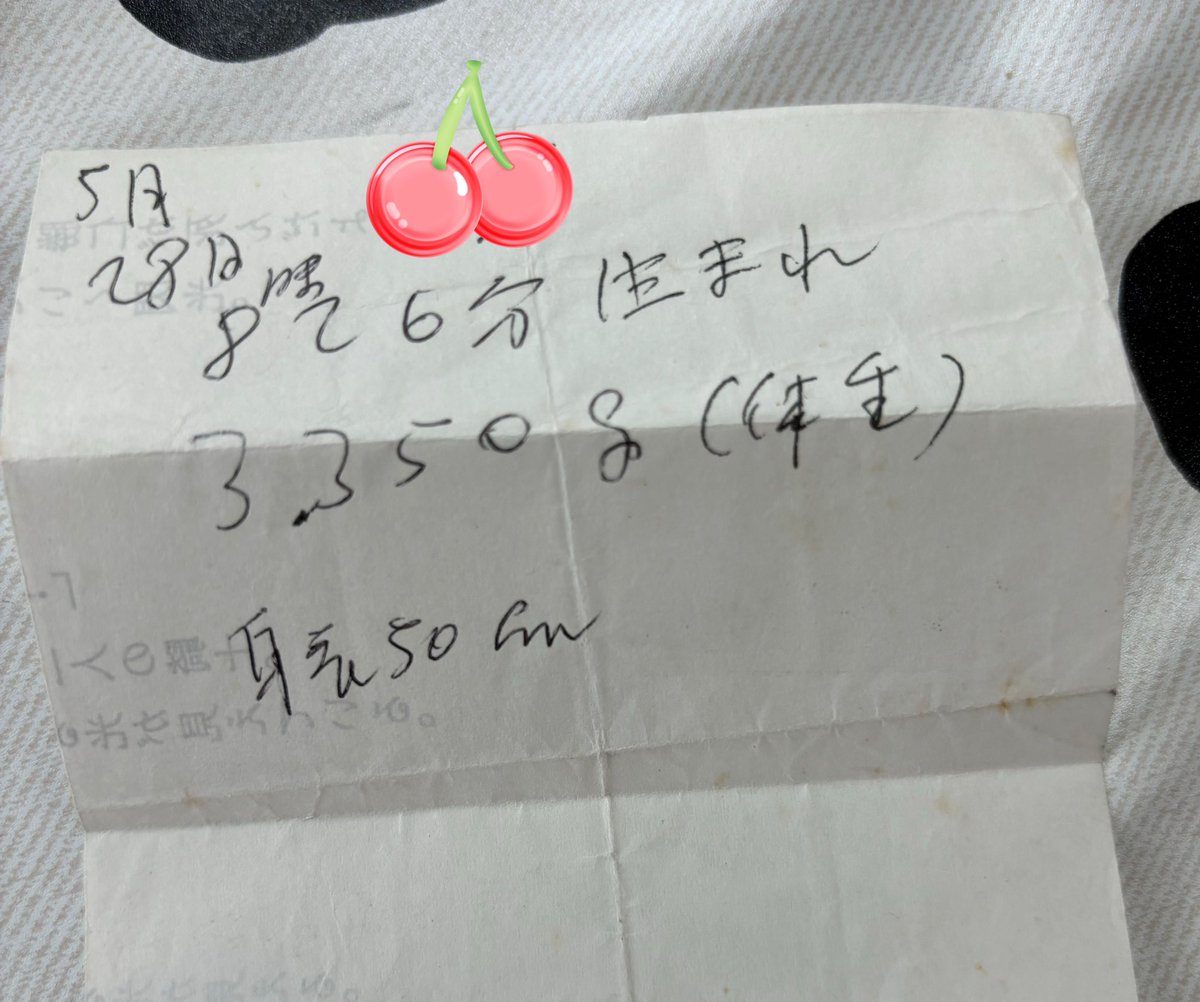 5月
28日
8時6分 生まれ
3.350g (体重)
身長50cm